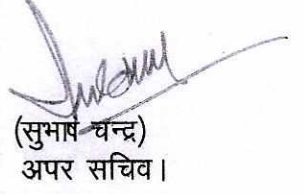 (सुभाष चन्द्र)
अपर सचिव।